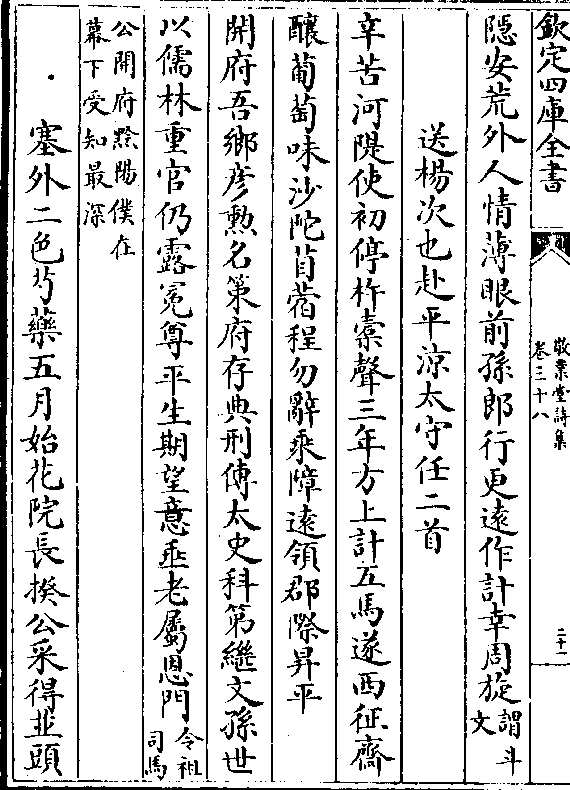 欽定四庫全書
敬業堂詩集
卷三十八
二十一
隱安荒外人情薄眼前孫郎行更遠作計幸周旋謂斗文
送楊次也赴平涼太守任二首
辛苦河隄使初停柞橐聲三年方上計五馬遂西征齋
釀葡萄味沙陀苜蓿程勿辭乘障遠領郡際昇平
開府吾鄉彥勲名策府存典刑傳太史科第繼文孫世
以儒林重官仍露冕尊平生期望意垂老屬恩門令祖司馬
公開府黔陽僕在幕下受知最深
塞外二色芍藥五月始花院長揆公采得並頭